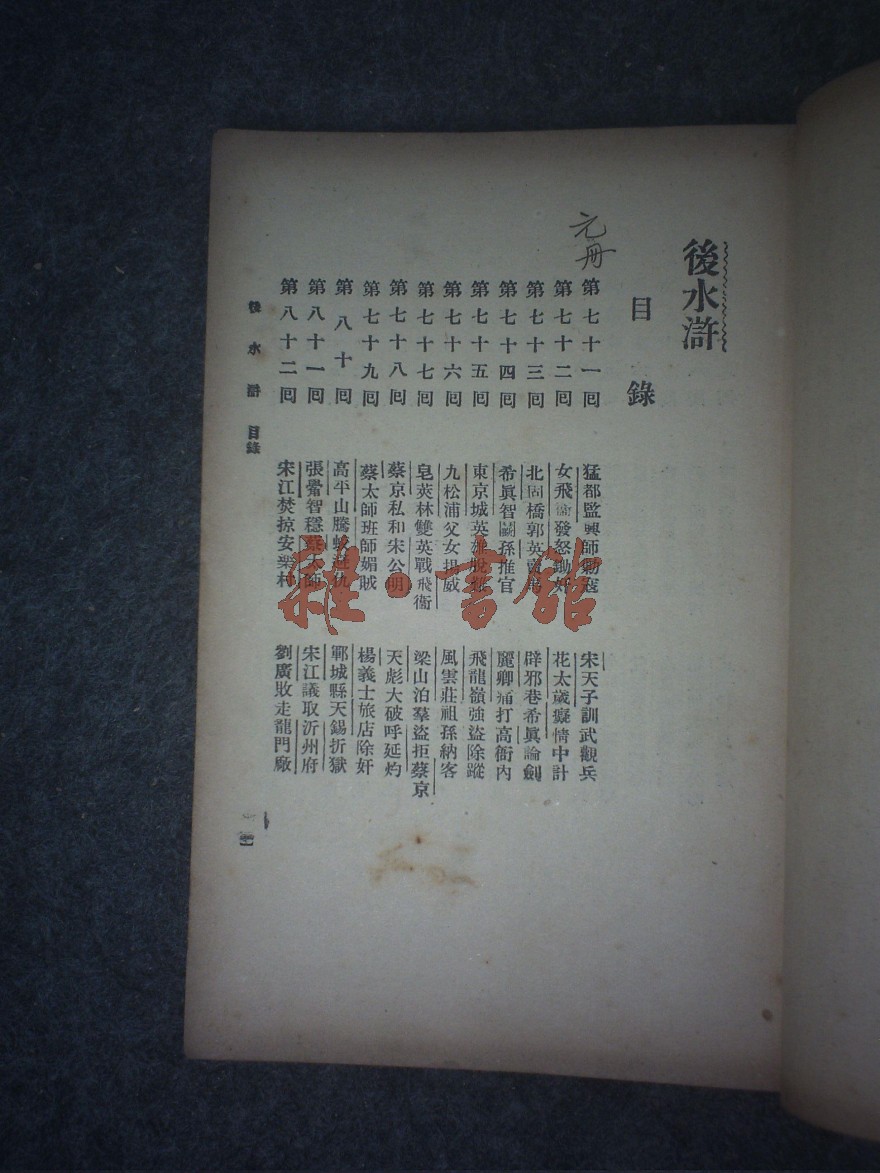 後水滸
目錄
元冊
第七十一囘 猛都監興師勦寇 宋天子訓武觀兵
第七十二囘 女飛衞發怒鋤奸 花太歲癡情中計
第七十三囘 北固橋郭英賣馬 辟邪巷希眞論劍
第七十四囘 希眞智鬭孫推官 麗卿痛打高衙內
第七十五囘 東京城英雄脫難 飛龍嶺強盜除蹤
第七十六囘 九松浦父女揚威 風雲莊祖孫納客
第七十七囘 皂莢林雙英戰飛衞 梁山泊羣盜拒蔡京
第七十八囘 蔡京私和宋公明 天彪大破呼延灼
第七十九囘 蔡太師班師媚賊 楊義士旅店除奸
第八十囘 高平山騰蛟避仇 鄆城縣天錫折獄
第八十一囘 張觷智穩蔡太師 宋江議取沂州府
第八十二囘 宋江焚掠安樂村 劉廣敗走龍門厰
後水滸 目錄
雜·書館